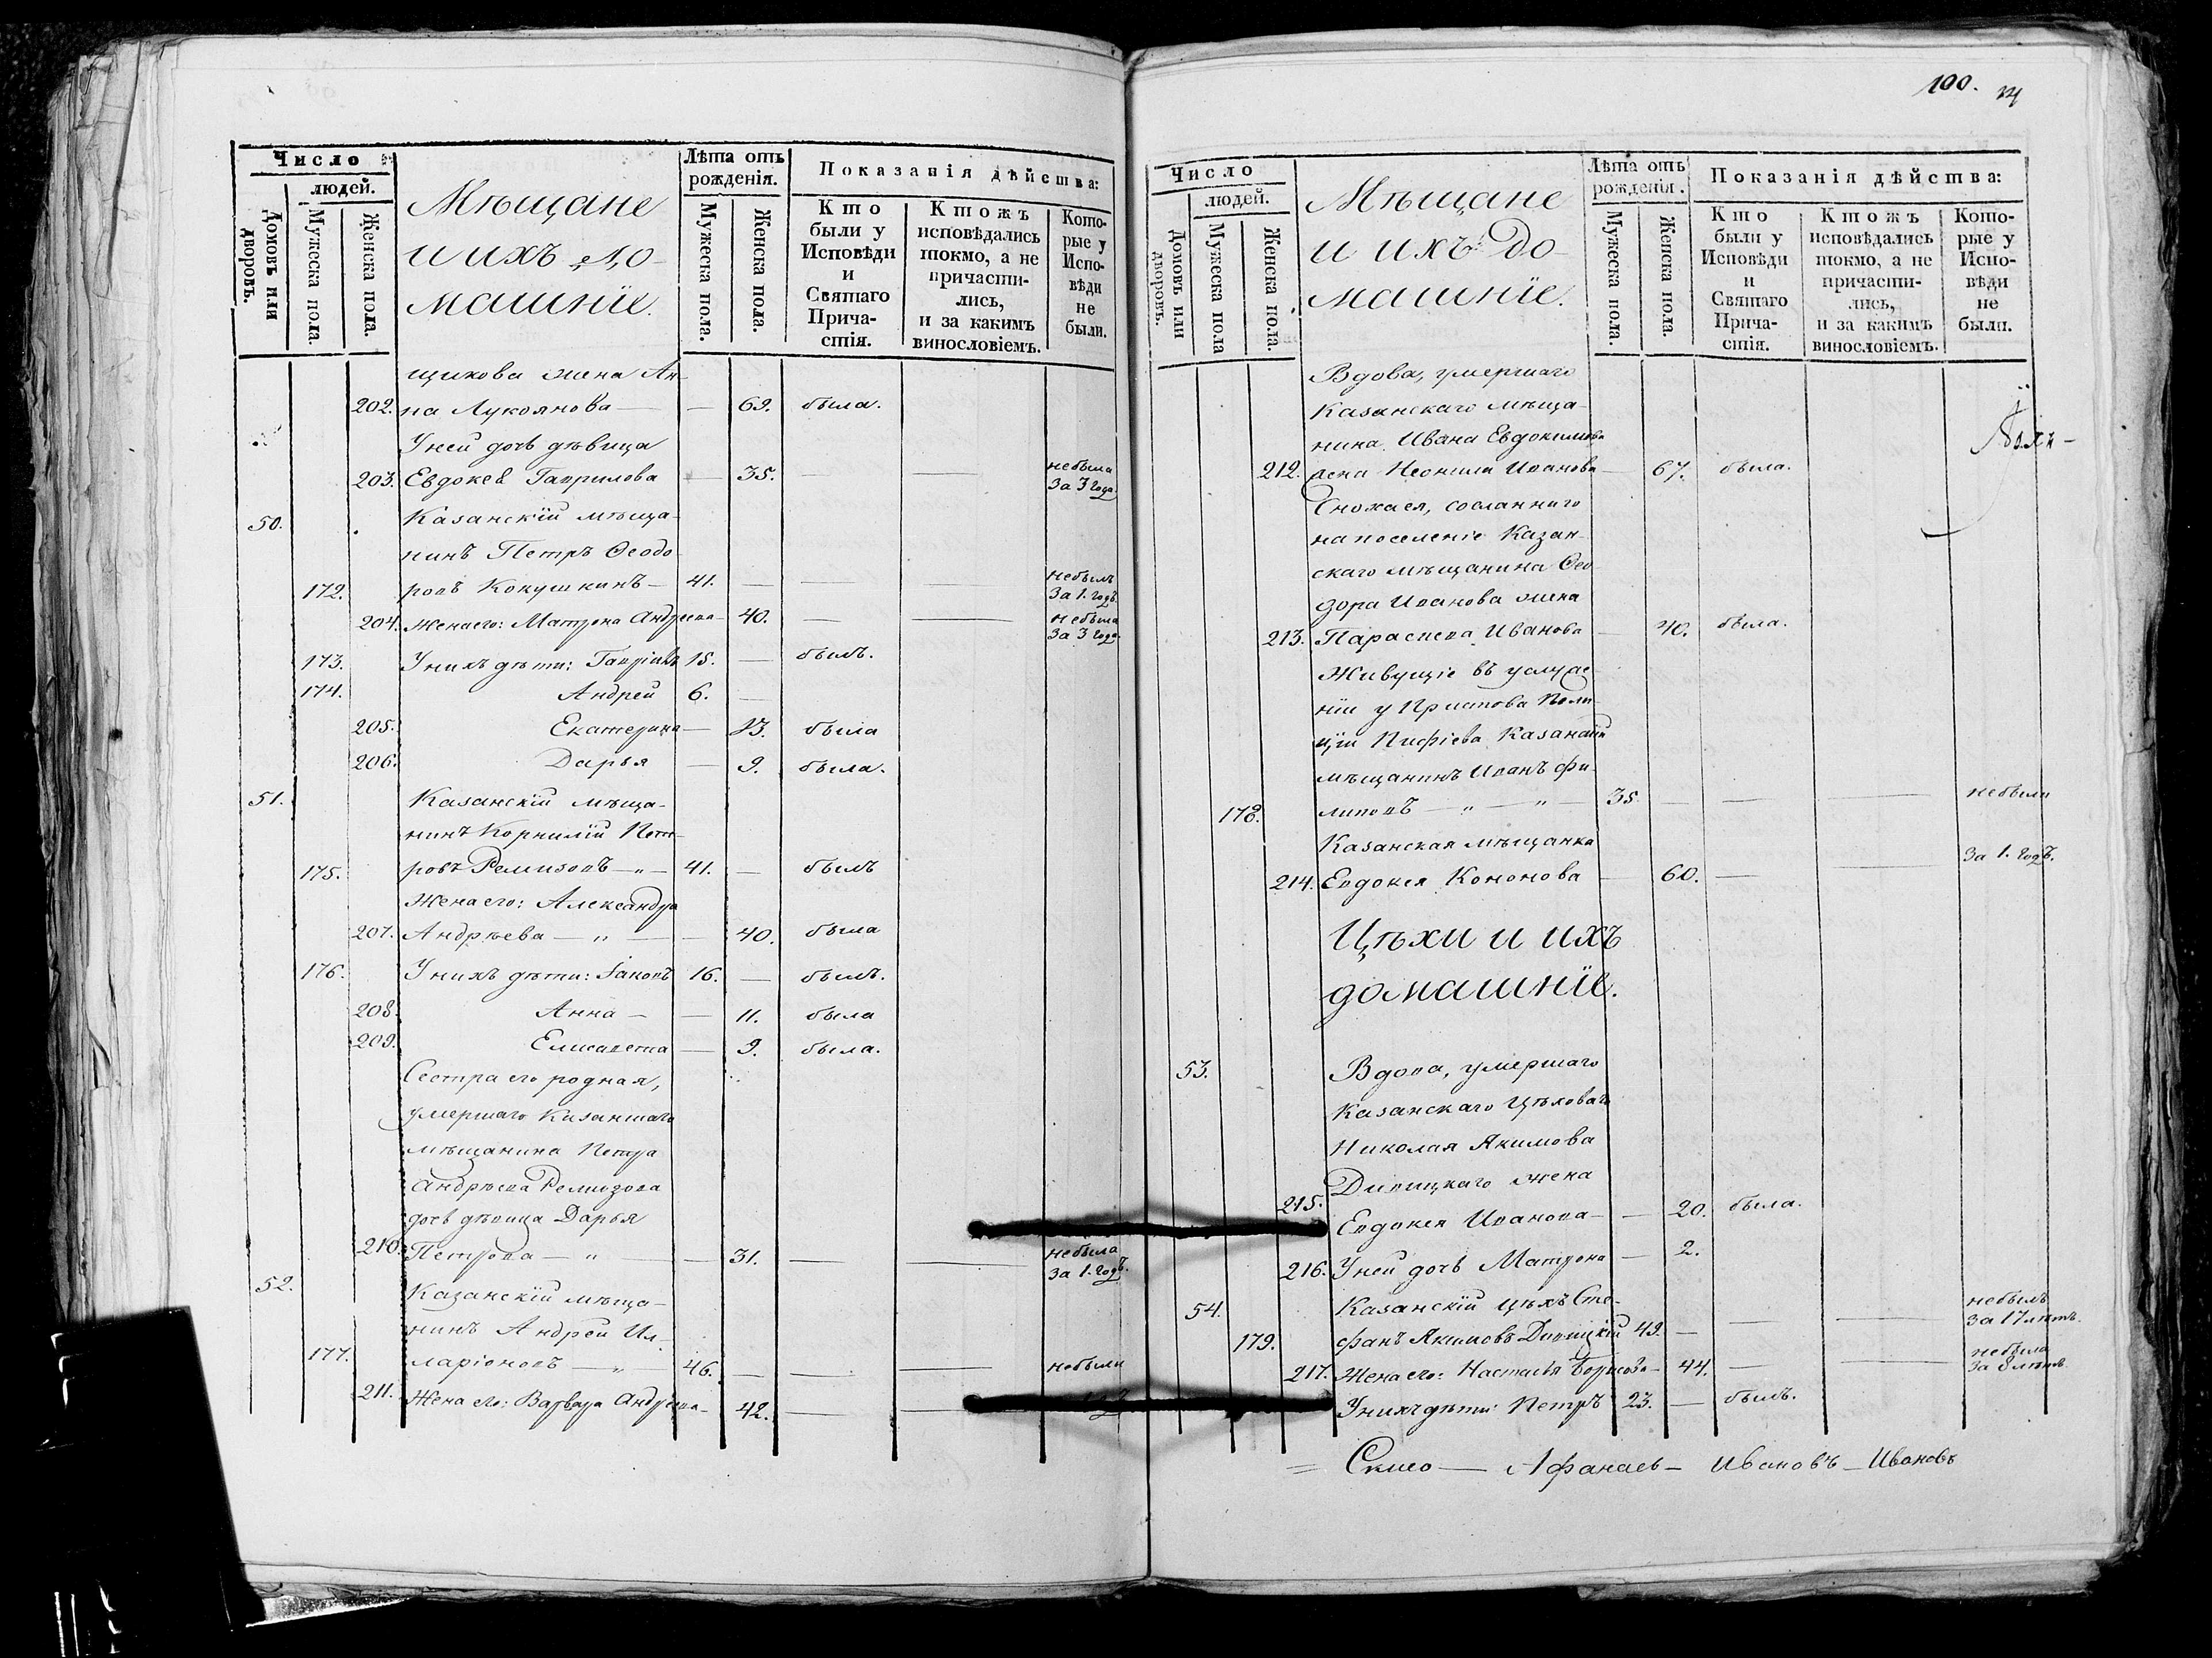 Число
людей.
Домовъ или дворовъ.
Мужеска пола.
Женска пола.
Мѣщане
и ихъ до-
машніе.
Лѣта отъ
рожденія.
Мужеска пола.
Женска пола.
Показанія дѣйства:
Кто
были у
Исповѣди
и
Святаго
Прича-
стія.
Ктожъ
исповѣдались
токмо, а не
причасти-
лись,
и за какимъ
винословіемъ.
Кото-
рые у
Испо-
вѣди
не
были.
щикова жена Ан-
202. на Лукоянова — — 69. была.
У ней дочь дѣвица
203. Евдокея Гаврилова — 35. — — небыла за 3 года.
50. Казанскій мѣща-
нинъ Петръ Ѳеодо-
172. ровъ Кокушкинъ — 41. — — небылъ за 1. годъ.
204. Жена его: Матрона Андреева — 40. — — небыла за 3 года.
173. У нихъ дѣти: Гавріилъ 15. — былъ.
174. Андрей 6. —
205. Екатерина — 13. была
206. Дарья — 9. была.
51. Казанскій мѣща-
нинъ Корнилій Пет-
175. ровъ Ремизовъ — „ — 41. — былъ
Жена его: Александра
207. Андрѣева — „ — — 40. была
176. У нихъ дѣти: Іаковъ 16. — былъ.
208. Анна — — 11. была
209. Елисавета — 9. была.
Сестра его родная,
умершаго Казанскаго
мѣщанина Петра
Андрѣева Ремизова
дочь дѣвица Дарья
210. Петрова — „ — — 31. — — небыла за 1. годъ.
52. Казанскій мѣща-
нинъ Андрей Ил-
177. ларіоновъ — „ — 46. — — — небыли
211. Жена его: Варвара Андреева — 42. — —
100.
Число
людей.
Домовъ или дворовъ.
Мужеска пола
Женска пола.
Мѣщане
и ихъ до-
машніе.
Лѣта отъ
рожденія.
Мужеска пола.
Женска пола.
Показанія дѣйства:
Кто
были у
Исповѣди
и
Святаго
Прича-
стія.
Ктожъ
исповѣдались
токмо, а не
причасти-
лись,
и за какимъ
винословіемъ.
Кото-
рые у
Испо-
вѣди
не
были.
Вдова, умершаго
Казанскаго мѣща-
нина Ивана Евдокимова
212. жена Неонила Иванова — 67. была.
Сноха ея, сосланнаго
на поселеніе Казан-
скаго мѣщанина Ѳео-
дора Иванова жена
213. Параскева Иванова — 40. была.
Живущіе въ услуже-
ніи у Пристава Поли-
ціи Казанскій
мѣщанинъ Иванъ Фи-
178. липовъ — „ — „ — 35. — — — небыли
Казанская мѣщанка
за 1. годъ.
214. Евдокея Кононова — 60. — —
Цѣхи и ихъ
домашніе.
53. Вдова, умершаго
Казанскаго Цѣховаго
Николая Якимова
Дивицкаго жена
215. Евдокея Иванова — — 20. была.
216. У ней дочь Матрона — 2.
54. Казанскій цѣхъ Сте-
179. фанъ Якимовъ Дивицкій 49. — — — небылъ за 17 лѣтъ.
217. Жена его: Настасья Борисова — 44. — — небыла за 8 лѣтъ.
У нихъ дѣти: Петръ 23. — былъ.
Афанасъ — Ивановъ — Ивановъ